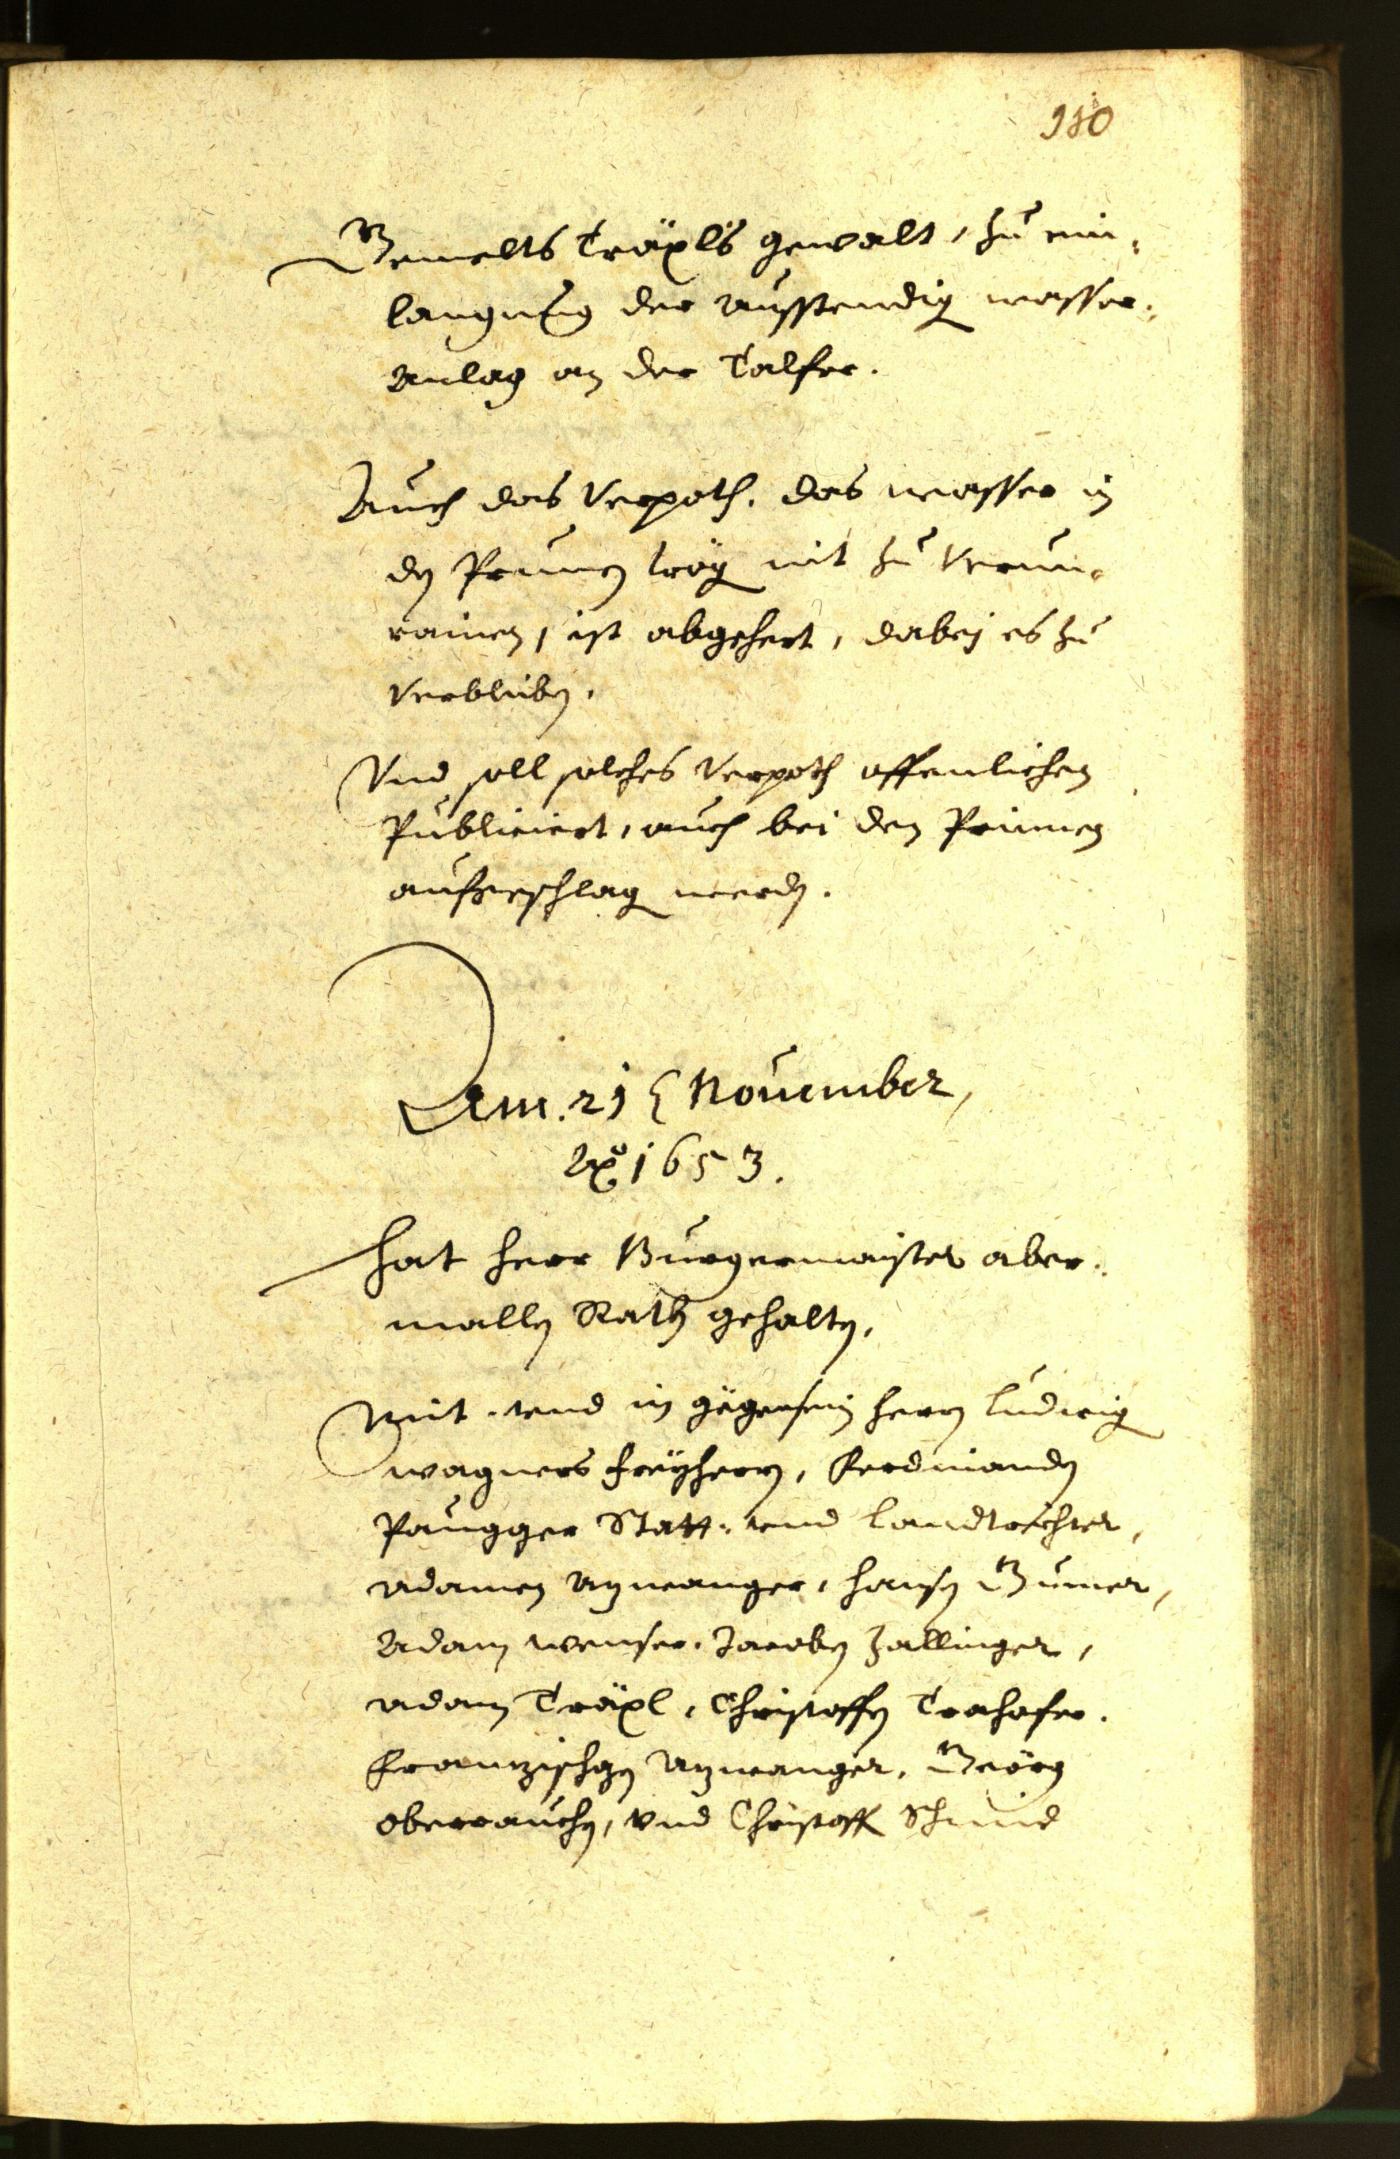 980
Gemelts Träxls gewalt, zu ein-
langung der ausstendig wasser-
Anlag an der Talfer.
Auch das Verpoth, das wasser in
den Prunnen trög nit zu verun-
rainen, ist abgehert, dabej es zu
Verbleiben.
Vnd soll solches Verpoth offenlichen
Publiciert, auch bei den Prinnen
aufgeschlag werden.
Am. 21 November,
Ao 1653.
Hat herr Burgermaister aber-
mallen Rath gehalten,
Mit. vnd in gegensein herrn Ludwig
wagners freyherrn, Ferdinanden
Paugger Statt- vnd Landtrichter,
Adamen Azwanger, hansen Gumer,
Adam wenser, Jacoben Zallinger,
Adam Träxl, Christoffen Trahofer.
Frantzischgen Azwanger, Geörg
Oberrauchen, vnd Christoff Schmid